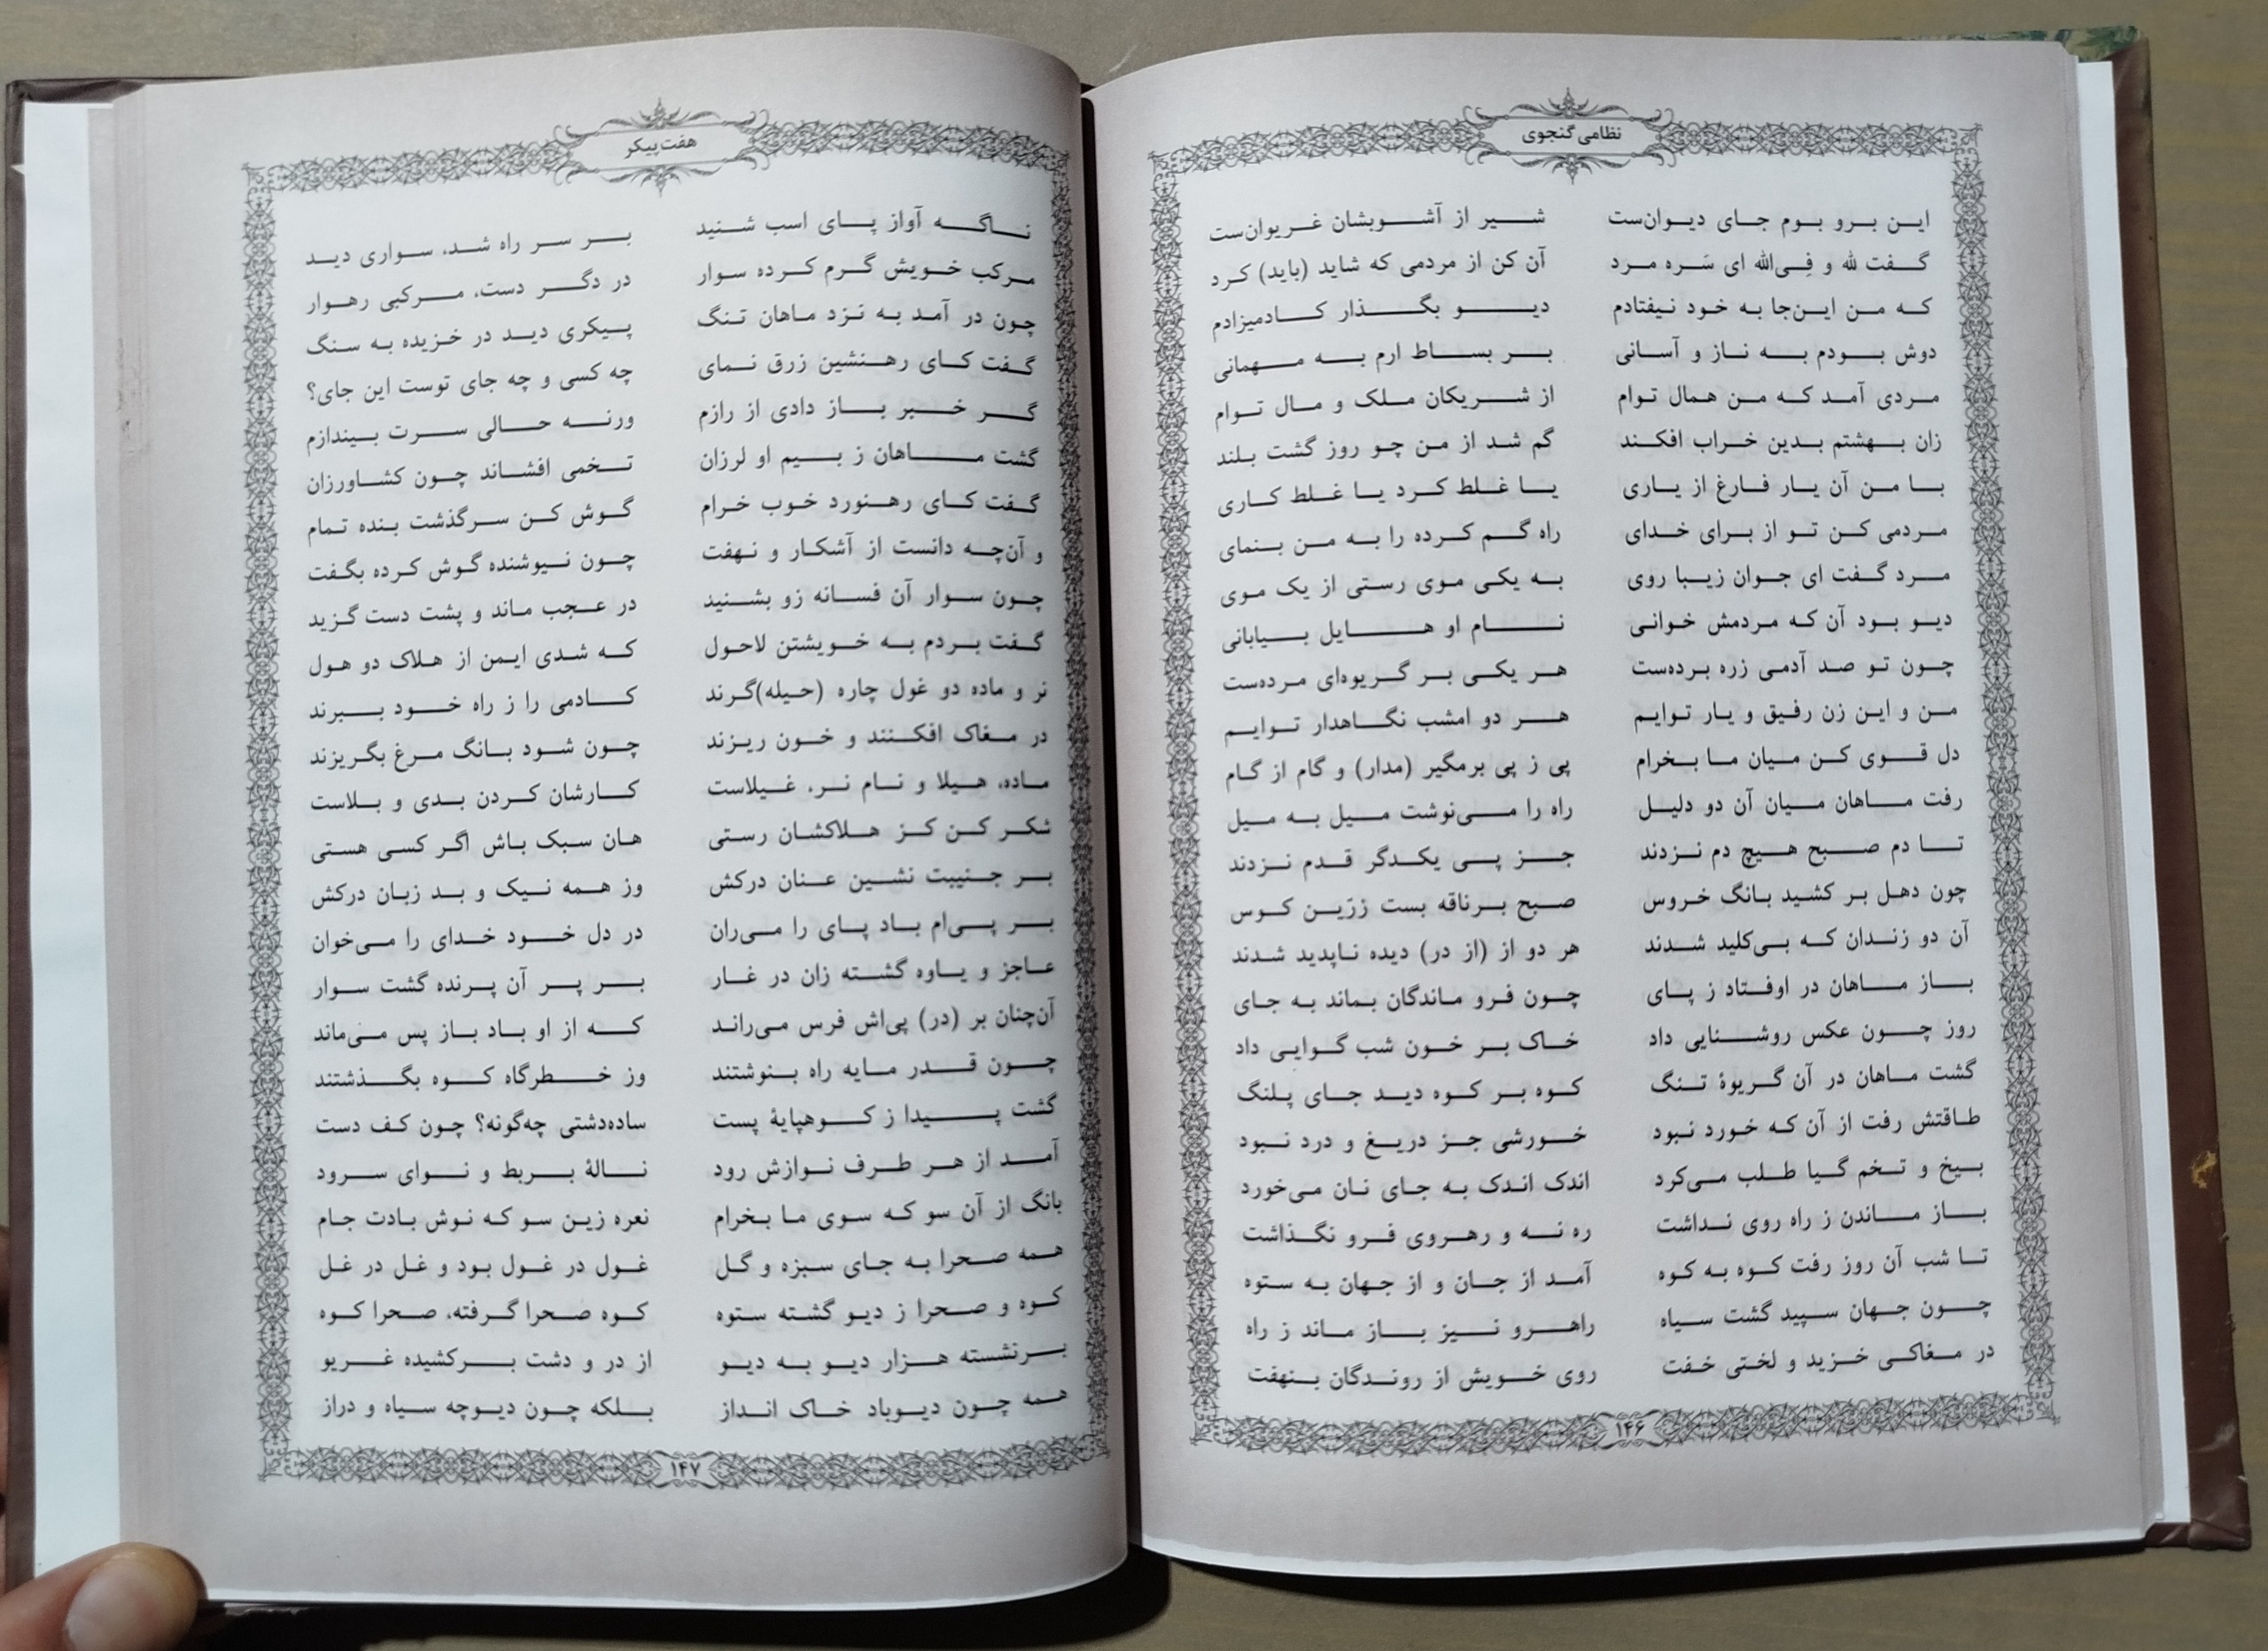 نظامی گنجوی
این برو بوم جای دیوان‌ست شیر از آشوبشان غریوان‌ست
گفت لله و فِی‌الله ای سَره مرد آن کن از مردمی که شاید (باید) کرد
که من این‌جا به خود نیفتادم دیو بگذار کادمیزادم
دوش بودم به ناز و آسانی بر بساط ارم به مهمانی
مردی آمد که من همال توام از شریکان ملک و مال توام
زان بهشتم بدین خراب افکند گم شد از من چو روز گشت بلند
با من آن یار فارغ از یاری یا غلط کرد یا غلط کاری
مردمی کن تو از برای خدای راه گم کرده را به من بنمای
مرد گفت ای جوان زیبا روی به یکی موی رستی از یک موی
دیو بود آن که مردمش خوانی نام او هایل بیابانی
چون تو صد آدمی زره برده‌ست هر یکی بر گریوه‌ای مرده‌ست
من و این زن رفیق و یار توایم هر دو امشب نگاهدار توایم
دل قوی کن میان ما بخرام پی ز پی برمگیر (مدار) و گام از گام
رفت ماهان میان آن دو دلیل راه را می‌نوشت میل به میل
تا دم صبح هیچ دم نزدند جز پی یکدگر قدم نزدند
چون دهل بر کشید بانگ خروس صبح برناقه بست زرّین کوس
آن دو زندان که بی‌کلید شدند هر دو از (از در) دیده ناپدید شدند
باز ماهان در اوفتاد ز پای چون فرو ماندگان بماند به جای
روز چون عکس روشنایی داد خاک بر خون شب گوایی داد
گشت ماهان در آن گریوهٔ تنگ کوه بر کوه دید جای پلنگ
طاقتش رفت از آن که خورد نبود خورشی جز دریغ و درد نبود
بیخ و تخم گیا طلب می‌کرد اندک اندک به جای نان می‌خورد
باز ماندن ز راه روی نداشت ره نه و رهروی فرو نگذاشت
تا شب آن روز رفت کوه به کوه آمد از جان و از جهان به ستوه
چون جهان سپید گشت سیاه راهرو نیز باز ماند ز راه
در مغاکی خزید و لختی خفت روی خویش از روندگان بنهفت
۱۴۶
هفت‌پیکر
ناگه آواز پای اسب شنید بر سر راه شد، سواری دید
مرکب خویش گرم کرده سوار در دگر دست، مرکبی رهوار
چون در آمد به نزد ماهان تنگ پیکری دید در خزیده به سنگ
گفت کای رهنشین زرق نمای چه کسی و چه جای توست این جای؟
گر خبر باز دادی از رازم ورنه حالی سرت بیندازم
گشت ماهان ز بیم او لرزان تخمی افشاند چون کشاورزان
گفت کای رهنورد خوب خرام گوش کن سرگذشت بنده تمام
و آن‌چه دانست از آشکار و نهفت چون نیوشنده گوش کرده بگفت
چون سوار آن فسانه زو بشنید در عجب ماند و پشت دست گزید
گفت بردم به خویشتن لاحول که شدی ایمن از هلاک دو هول
نر و ماده دو غول چاره (حیله)گرند کادمی را ز راه خود ببرند
در مغاک افکنند و خون ریزند چون شود بانگ مرغ بگریزند
ماده، هیلا و نام نر، غیلاست کارشان کردن بدی و بلاست
شکر کن کز هلاکشان رستی هان سبک باش اگر کسی هستی
بر جنیبت نشین عنان درکش وز همه نیک و بد زبان درکش
بر پی‌ام باد پای را می‌ران در دل خود خدای را می‌خوان
عاجز و یاوه گشته زان در غار بر پر آن پرنده گشت سوار
آن‌چنان بر (در) پی‌اش فرس می‌راند که از او باد باز پس می‌ماند
چون قدر مایه راه بنوشتند وز خطرگاه کوه بگذشتند
گشت پیدا ز کوهپایهٔ پست ساده‌دشتی چه‌گونه؟ چون کف دست
آمد از هر طرف نوازش رود نالهٔ بربط و نوای سرود
بانگ از آن سو که سوی ما بخرام نعره زین سو که نوش بادت جام
همه صحرا به جای سبزه و گل غول در غول بود و غل در غل
کوه و صحرا ز دیو گشته ستوه کوه صحرا گرفته، صحرا کوه
برنشسته هزار دیو به دیو از در و دشت برکشیده غریو
همه چون دیوباد خاک انداز بلکه چون دیوچه سیاه و دراز
۱۴۷